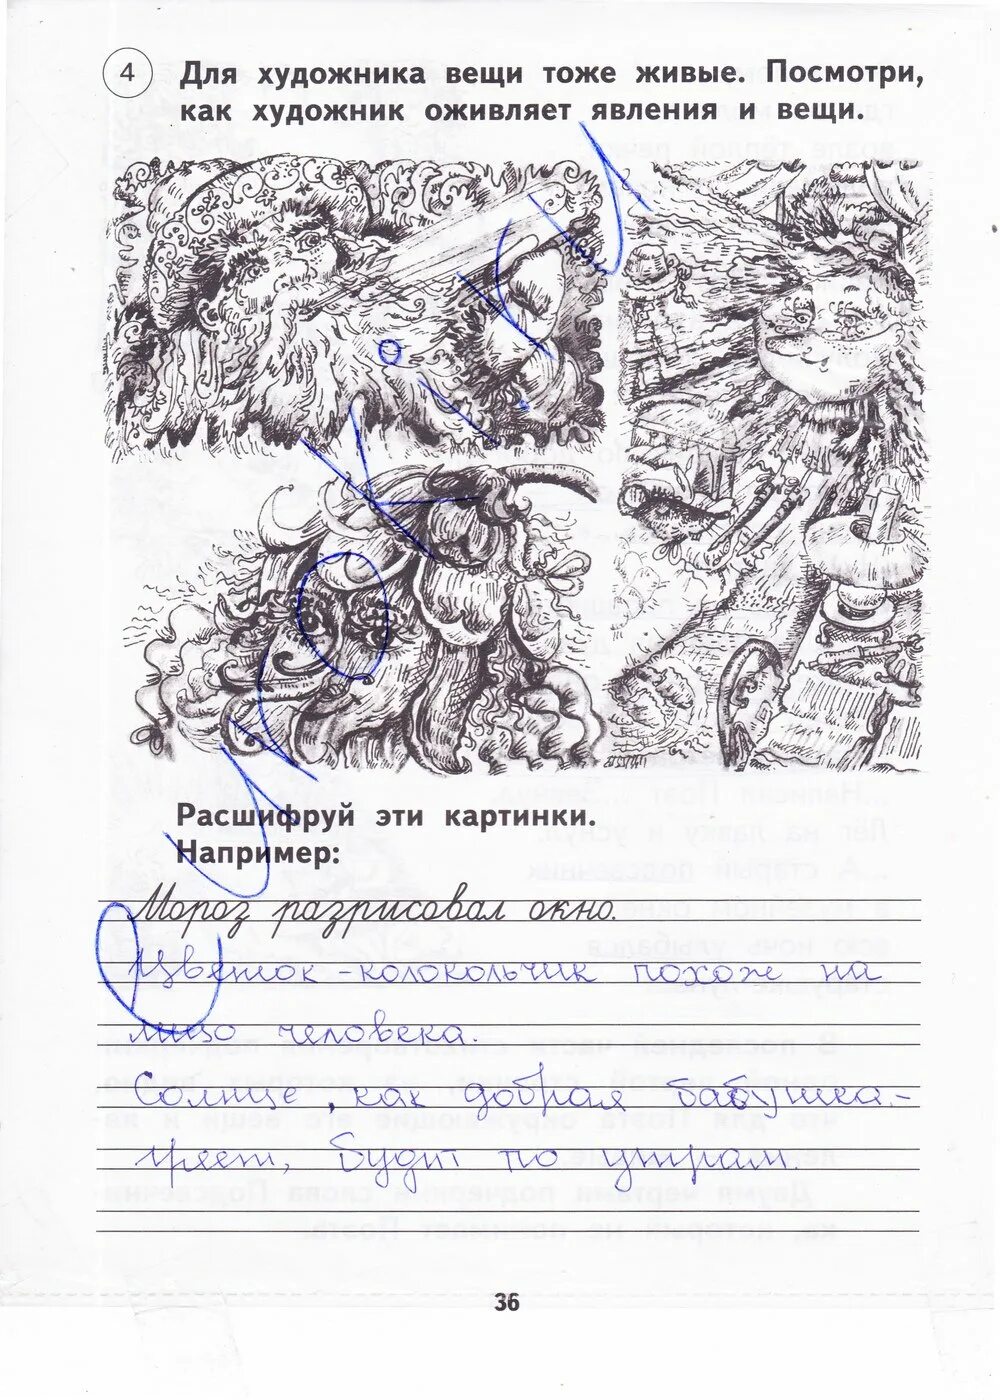 4
Для художника вещи тоже живые. Посмотри,
как художник оживляет явления и вещи.
Расшифруй эти картинки.
Например:
Мороз разрисовал окно.
Цветок-колокольчик похож на
лицо человека.
Солнце, как добрая бабушка -
греет, будит по утрам.
36